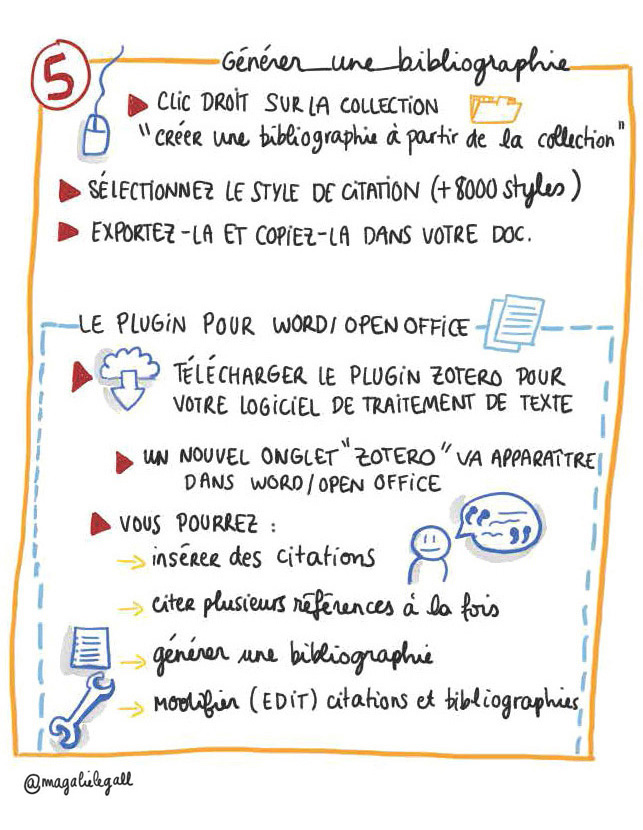 5
Générer une bibliographie
CLIC DROIT SUR LA COLLECTION
"créer une bibliographie à partir de la collection"
SÉLECTIONNEZ LE STYLE DE CITATION (+8000 styles)
EXPORTEZ-LA ET COPIEZ-LA DANS VOTRE DOC.
LE PLUGIN POUR WORD/OPEN OFFICE
TÉLÉCHARGER LE PLUGIN ZOTERO POUR
VOTRE LOGICIEL DE TRAITEMENT DE TEXTE
UN NOUVEL ONGLET "ZOTERO" VA APPARAÎTRE
DANS WORD/OPEN OFFICE
VOUS POURREZ :
insérer des citations
citer plusieurs références à la fois
générer une bibliographie
modifier (EDIT) citations et bibliographies
@magalielegall